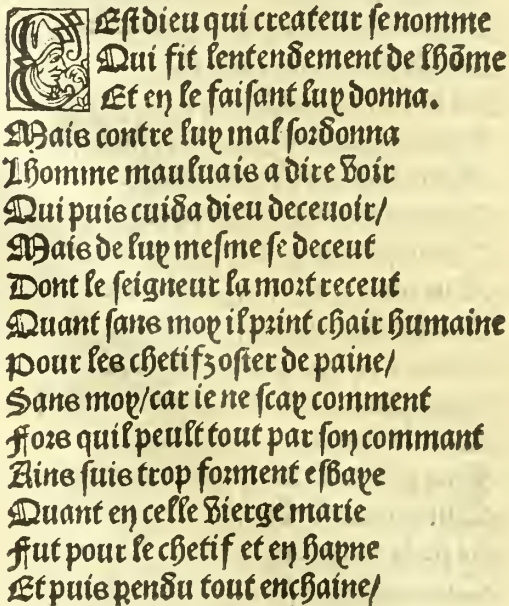 CEst dieu qui createur se nomme
Qui fit lentendement de lhõme
Et en le faisant luy donna.
Mais contre luy mal sordonna
Lhomme mauluais a dire voir
Qui puis cuida dieu deceuoir/
Mais de luy mesme se deceut
Dont le seigneur la mort receut
Quant sans moy il print chair humaine
Pour les chetifz oster de paine/
Sans moy/car ie ne scay comment
Fors quil peult tout par son commant
Ains suis trop forment esbaye
Quant en celle vierge marie
Fut pour le chetif et en hayne
Et puis pendu tout enchaine/